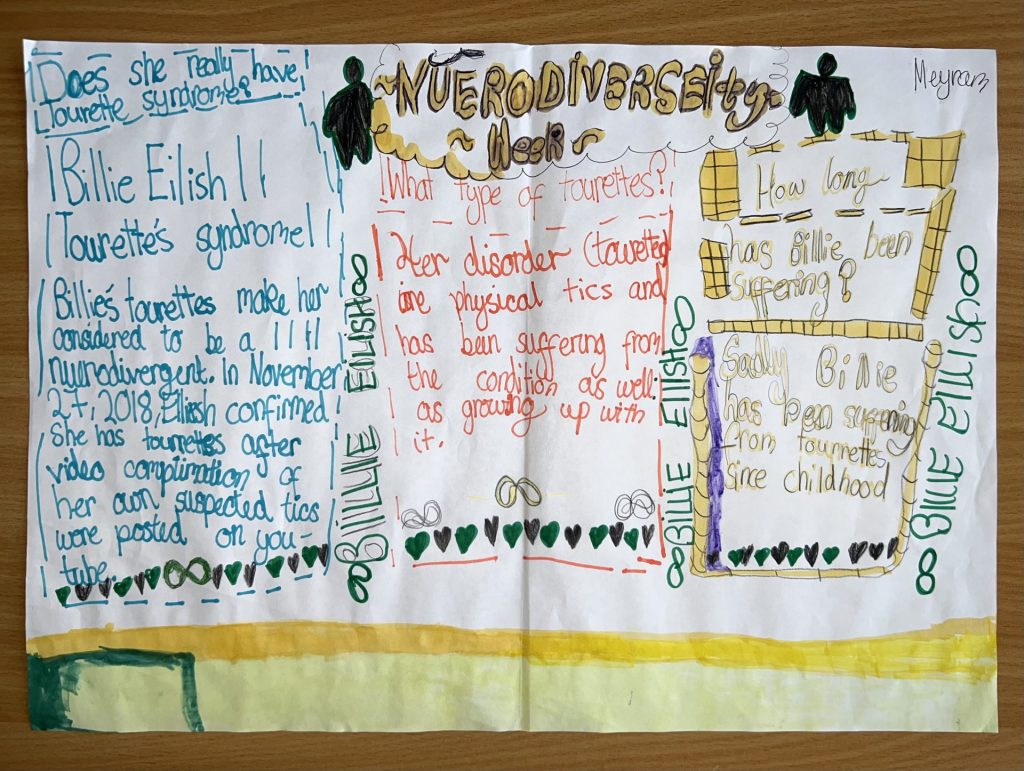 ~NUERODIVERSEity~
~Week~
Meyram
Does she really have
Tourette syndrome?
Billie Eilish
Tourette's syndrome
Billie's tourettes make her
considered to be a
nuerodivergent. In November
27, 2018, Eilish confirmed
She has tourettes after
video complimation of
her own suspected tics
were posted on you-
tube.
BILLIE EILISH
What type of tourettes?
Her disorder (tourettes)
are physical tics and
has been suffering from
the condition as well
as growing up with
it.
BILLIE EILISH
How long
has Billie been
suffering?
Sadly Billie
has been suffering
from tournettes
since childhood
BILLIE EILISH